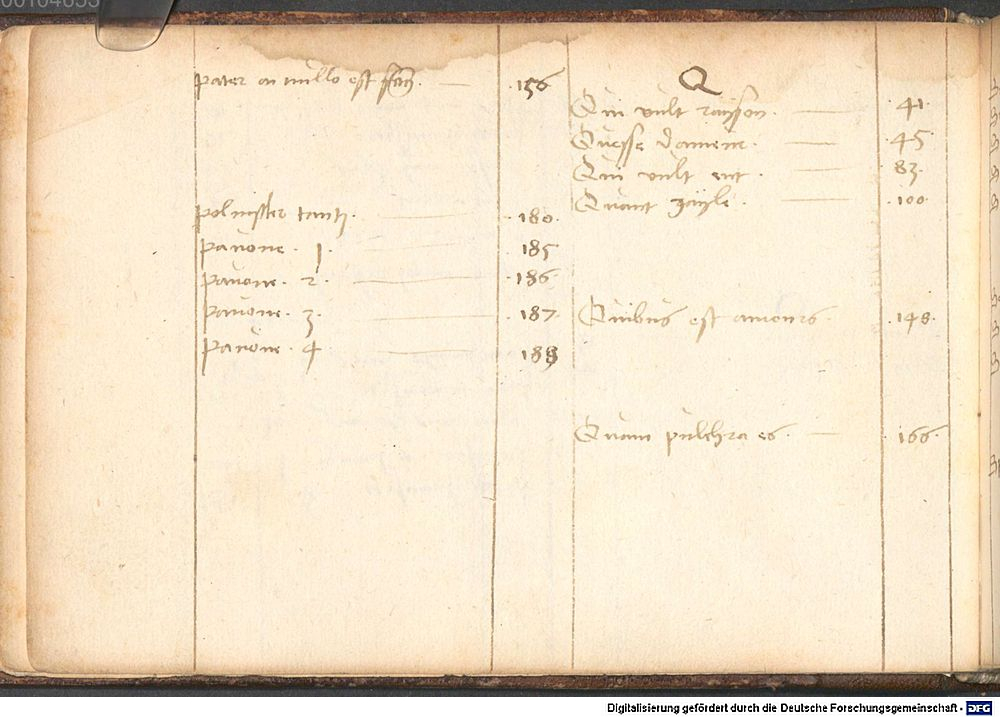 00104633
pater a nullo est fact9. 156
pol nisster tanti. 180.
pavone. 1. 185
pavone. 2. 186.
pavone. 3. 187.
pavone. 4. 188
Q
Qui vult raÿson. 41.
Quesse damene. 45
Qui vult ent. 83.
Quant zaÿle. 100
Quibus est amours. 148.
Quam pulchra es. 166.
Digitalisierung gefördert durch die Deutsche Forschungsgemeinschaft - DFG